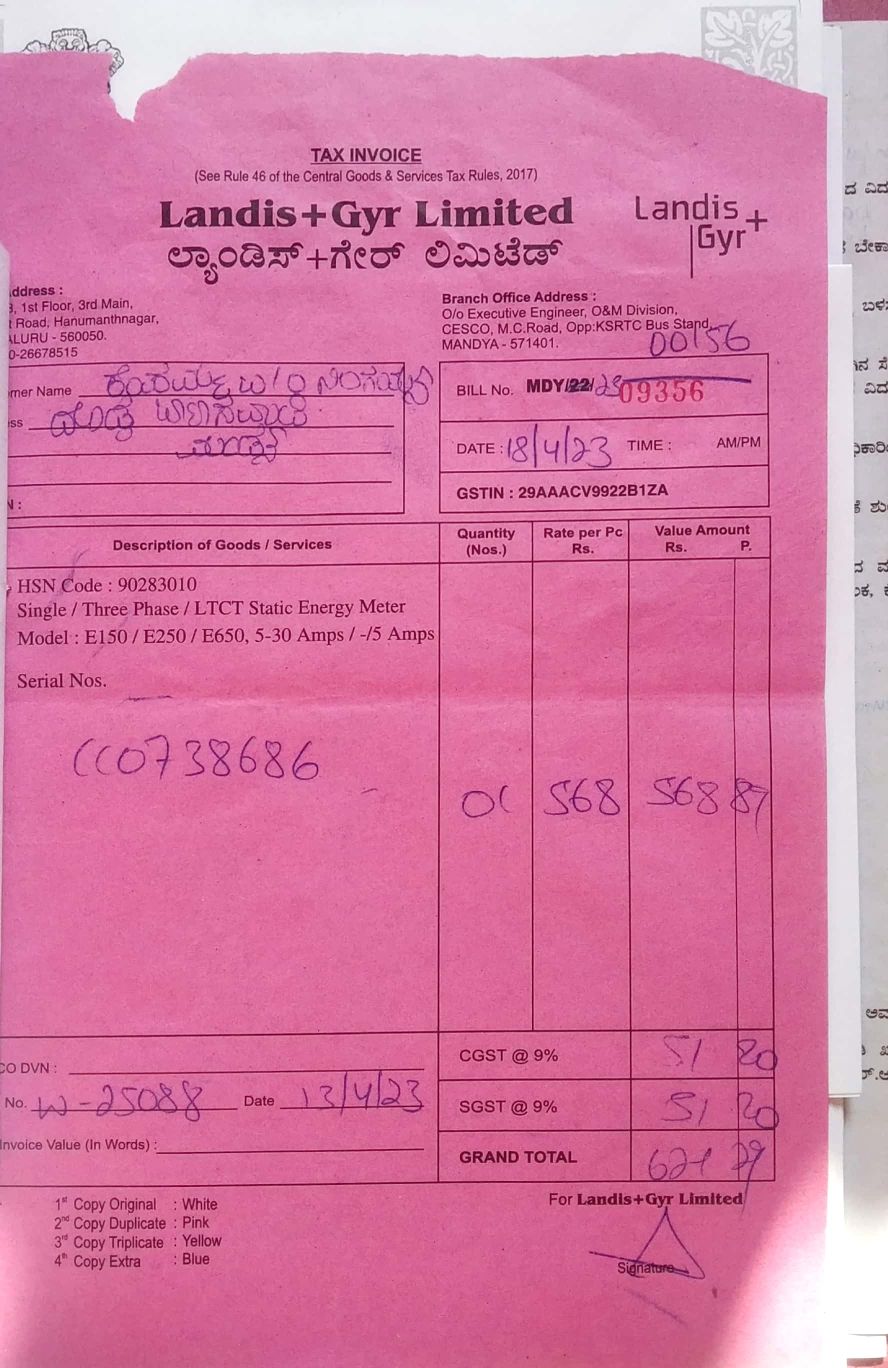 TAX INVOICE
(See Rule 46 of the Central Goods & Services Tax Rules, 2017)
Landis+Gyr Limited
ಲ್ಯಾಂಡಿಸ್+ಗೇರ್ ಲಿಮಿಟೆಡ್
Landis
Gyr+
ddress :
, 1st Floor, 3rd Main,
Road, Hanumanthnagar,
ALURU - 560050.
0-26678515
Branch Office Address :
O/o Executive Engineer, O&M Division,
CESCO, M.C.Road, Opp:KSRTC Bus Stand,
MANDYA - 571401.
00156
mer Name
ess
N :
BILL No. MDY/22/23 09356
DATE : 18/4/23 TIME : AM/PM
GSTIN : 29AAACV9922B1ZA
Description of Goods / Services
Quantity (Nos.)
Rate per Pc Rs.
Value Amount Rs. P.
HSN Code : 90283010
Single / Three Phase / LTCT Static Energy Meter
Model : E150 / E250 / E650, 5-30 Amps / -/5 Amps
Serial Nos.
CC0738686
01 568 568 87
CGST @ 9% 51 20
SGST @ 9% 51 20
GRAND TOTAL 671 29
CO DVN :
No. W-25088 Date 13/4/23
Invoice Value (In Words) :
1st Copy Original : White
2nd Copy Duplicate : Pink
3rd Copy Triplicate : Yellow
4th Copy Extra : Blue
For Landis+Gyr Limited
Signature